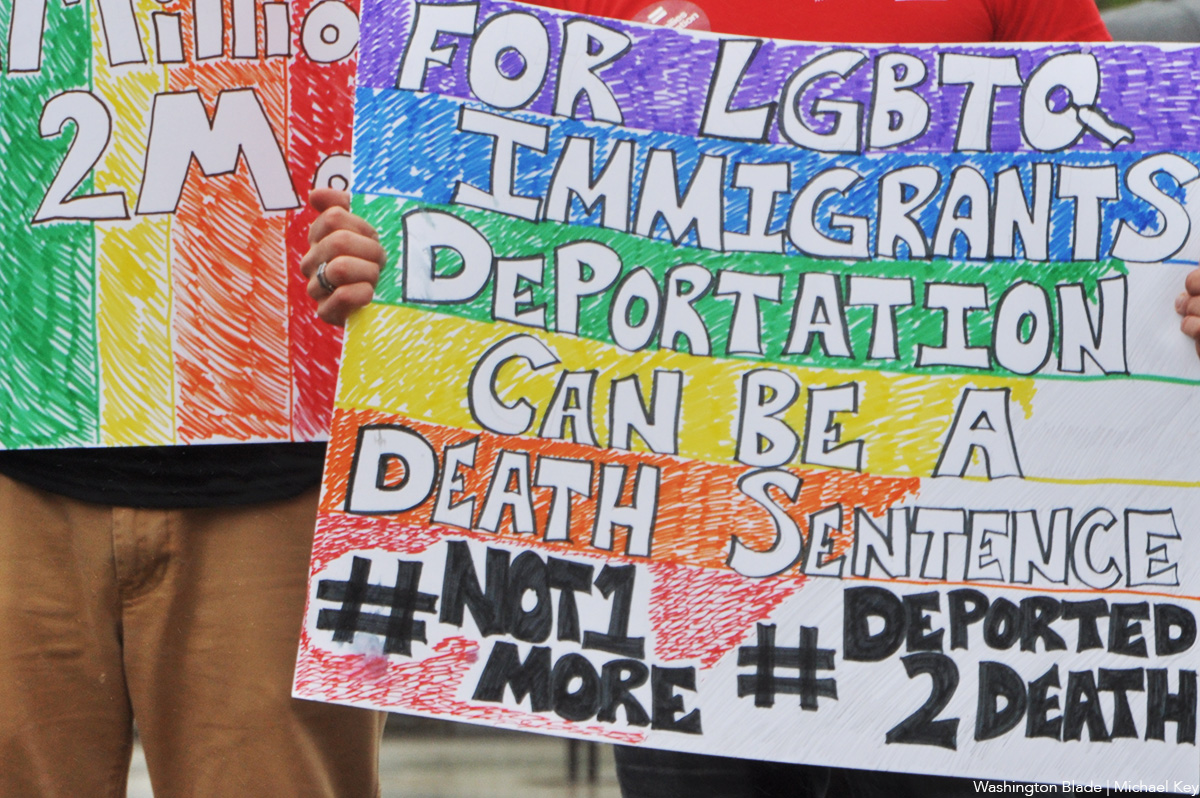 Millio
2M
FOR LGBTQ
IMMIGRANTS
DEPORTATION
CAN BE A
DEATH SENTENCE
#NOT1
MORE
#DEPORTED
2DEATH
Washington Blade | Michael Key